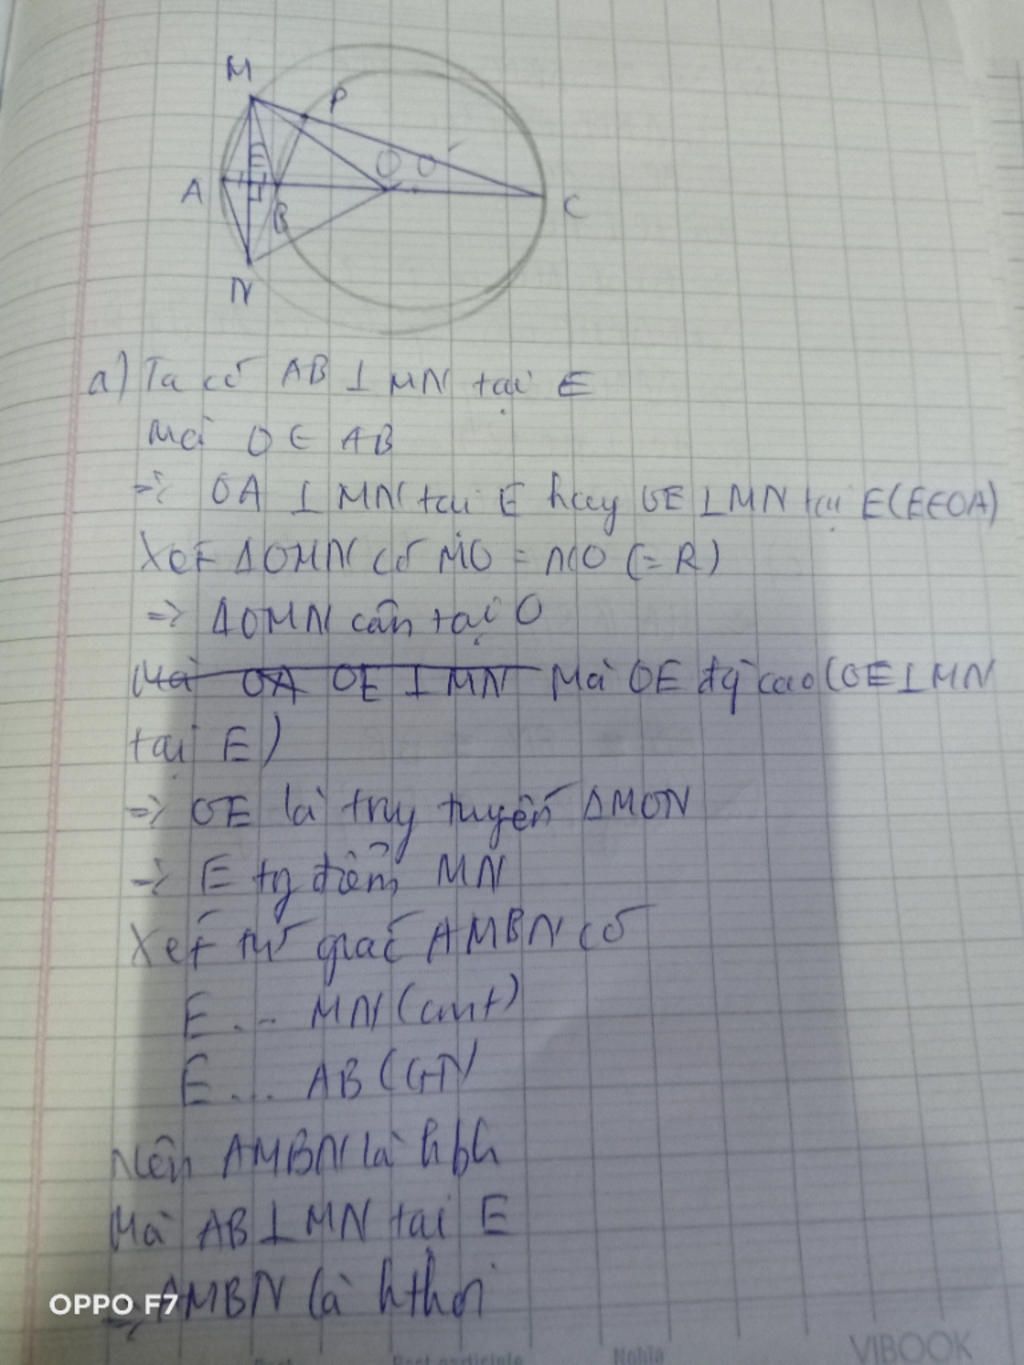 M
P
E
O O'
A
B
C
N
a) Ta có AB ⊥ MN tại E
Mà O ∈ AB
=> OA ⊥ MN tại E hay OE ⊥ MN tại E (E∈OA)
Xét ΔOMN có MO = NO (= R)
=> ΔOMN cân tại O
Mà OA OE ⊥ MN Mà OE đg cao (OE ⊥ MN
tại E)
=> OE là trug tuyến ΔMON
=> E tg điểm MN
Xét tứ giác AMBN có
E ... MN (cmt)
E ... AB (GT)
Nên AMBN là hbh
Mà AB ⊥ MN tại E
=> AMBN là hthoi
OPPO F7
VIBOOK